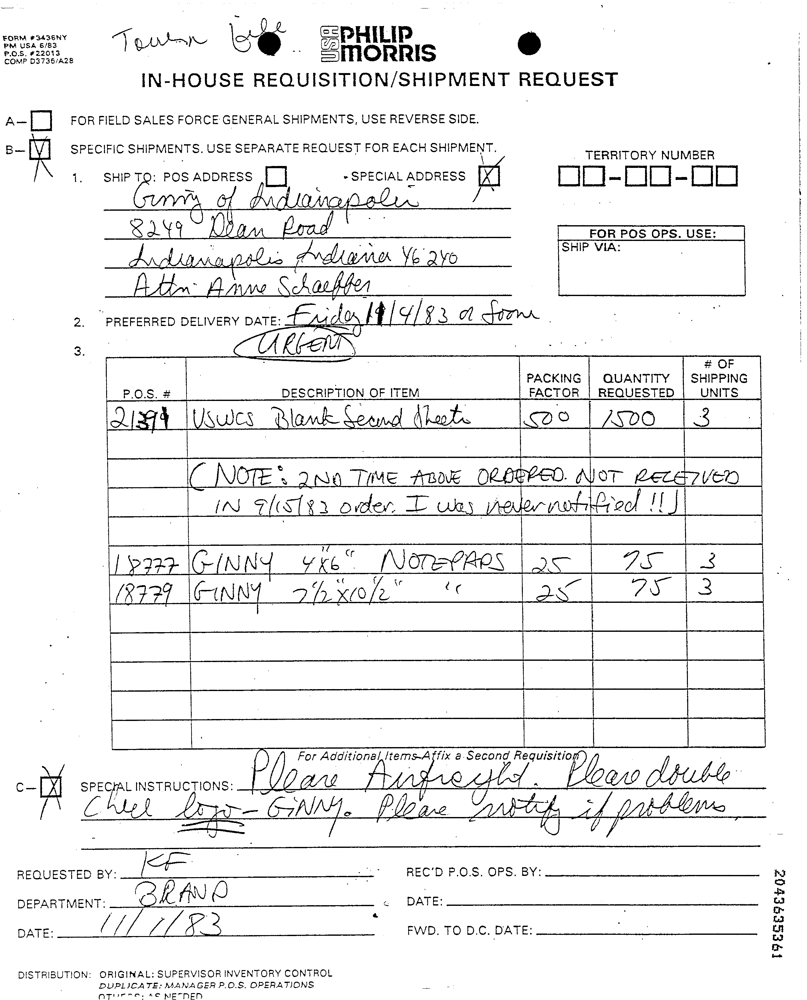 FORM #3436NY
PM USA 6/83
P.O.S. #22013
COMP D3736/A28
USA PHILIP
MORRIS
IN-HOUSE REQUISITION/SHIPMENT REQUEST
A– FOR FIELD SALES FORCE GENERAL SHIPMENTS, USE REVERSE SIDE.
B– SPECIFIC SHIPMENTS. USE SEPARATE REQUEST FOR EACH SHIPMENT.
TERRITORY NUMBER
1. SHIP TO: POS ADDRESS SPECIAL ADDRESS
Ginny of Indianapolis
8249 Dean Road
Indianapolis Indiana 46240
Attn: Anne Schaeffer
FOR POS OPS. USE:
SHIP VIA:
2. PREFERRED DELIVERY DATE: Friday 11/4/83 or Sooner
3. URGENT
P.O.S. # DESCRIPTION OF ITEM PACKING FACTOR QUANTITY REQUESTED # OF SHIPPING UNITS
USWCS Blank Second Sheets 500 1500 3
(NOTE: 2ND TIME ABOVE ORDERED. NOT RECEIVED
IN 9/15/83 order. I was never notified!!)
18777 GINNY 4"x6" NOTEPADS 25 75 3
18779 GINNY 7½"x10½" " 25 75 3
For Additional Items Affix a Second Requisition
C– SPECIAL INSTRUCTIONS: Please Airfreight. Please double
Check logo – GINNY. Please notify if problems.
REQUESTED BY: KF
DEPARTMENT: BRAND
DATE: 11/1/83
REC'D P.O.S. OPS. BY:
DATE:
FWD. TO D.C. DATE:
2043635361
DISTRIBUTION: ORIGINAL: SUPERVISOR INVENTORY CONTROL
DUPLICATE: MANAGER P.O.S. OPERATIONS
OTHERS: AS NEEDED